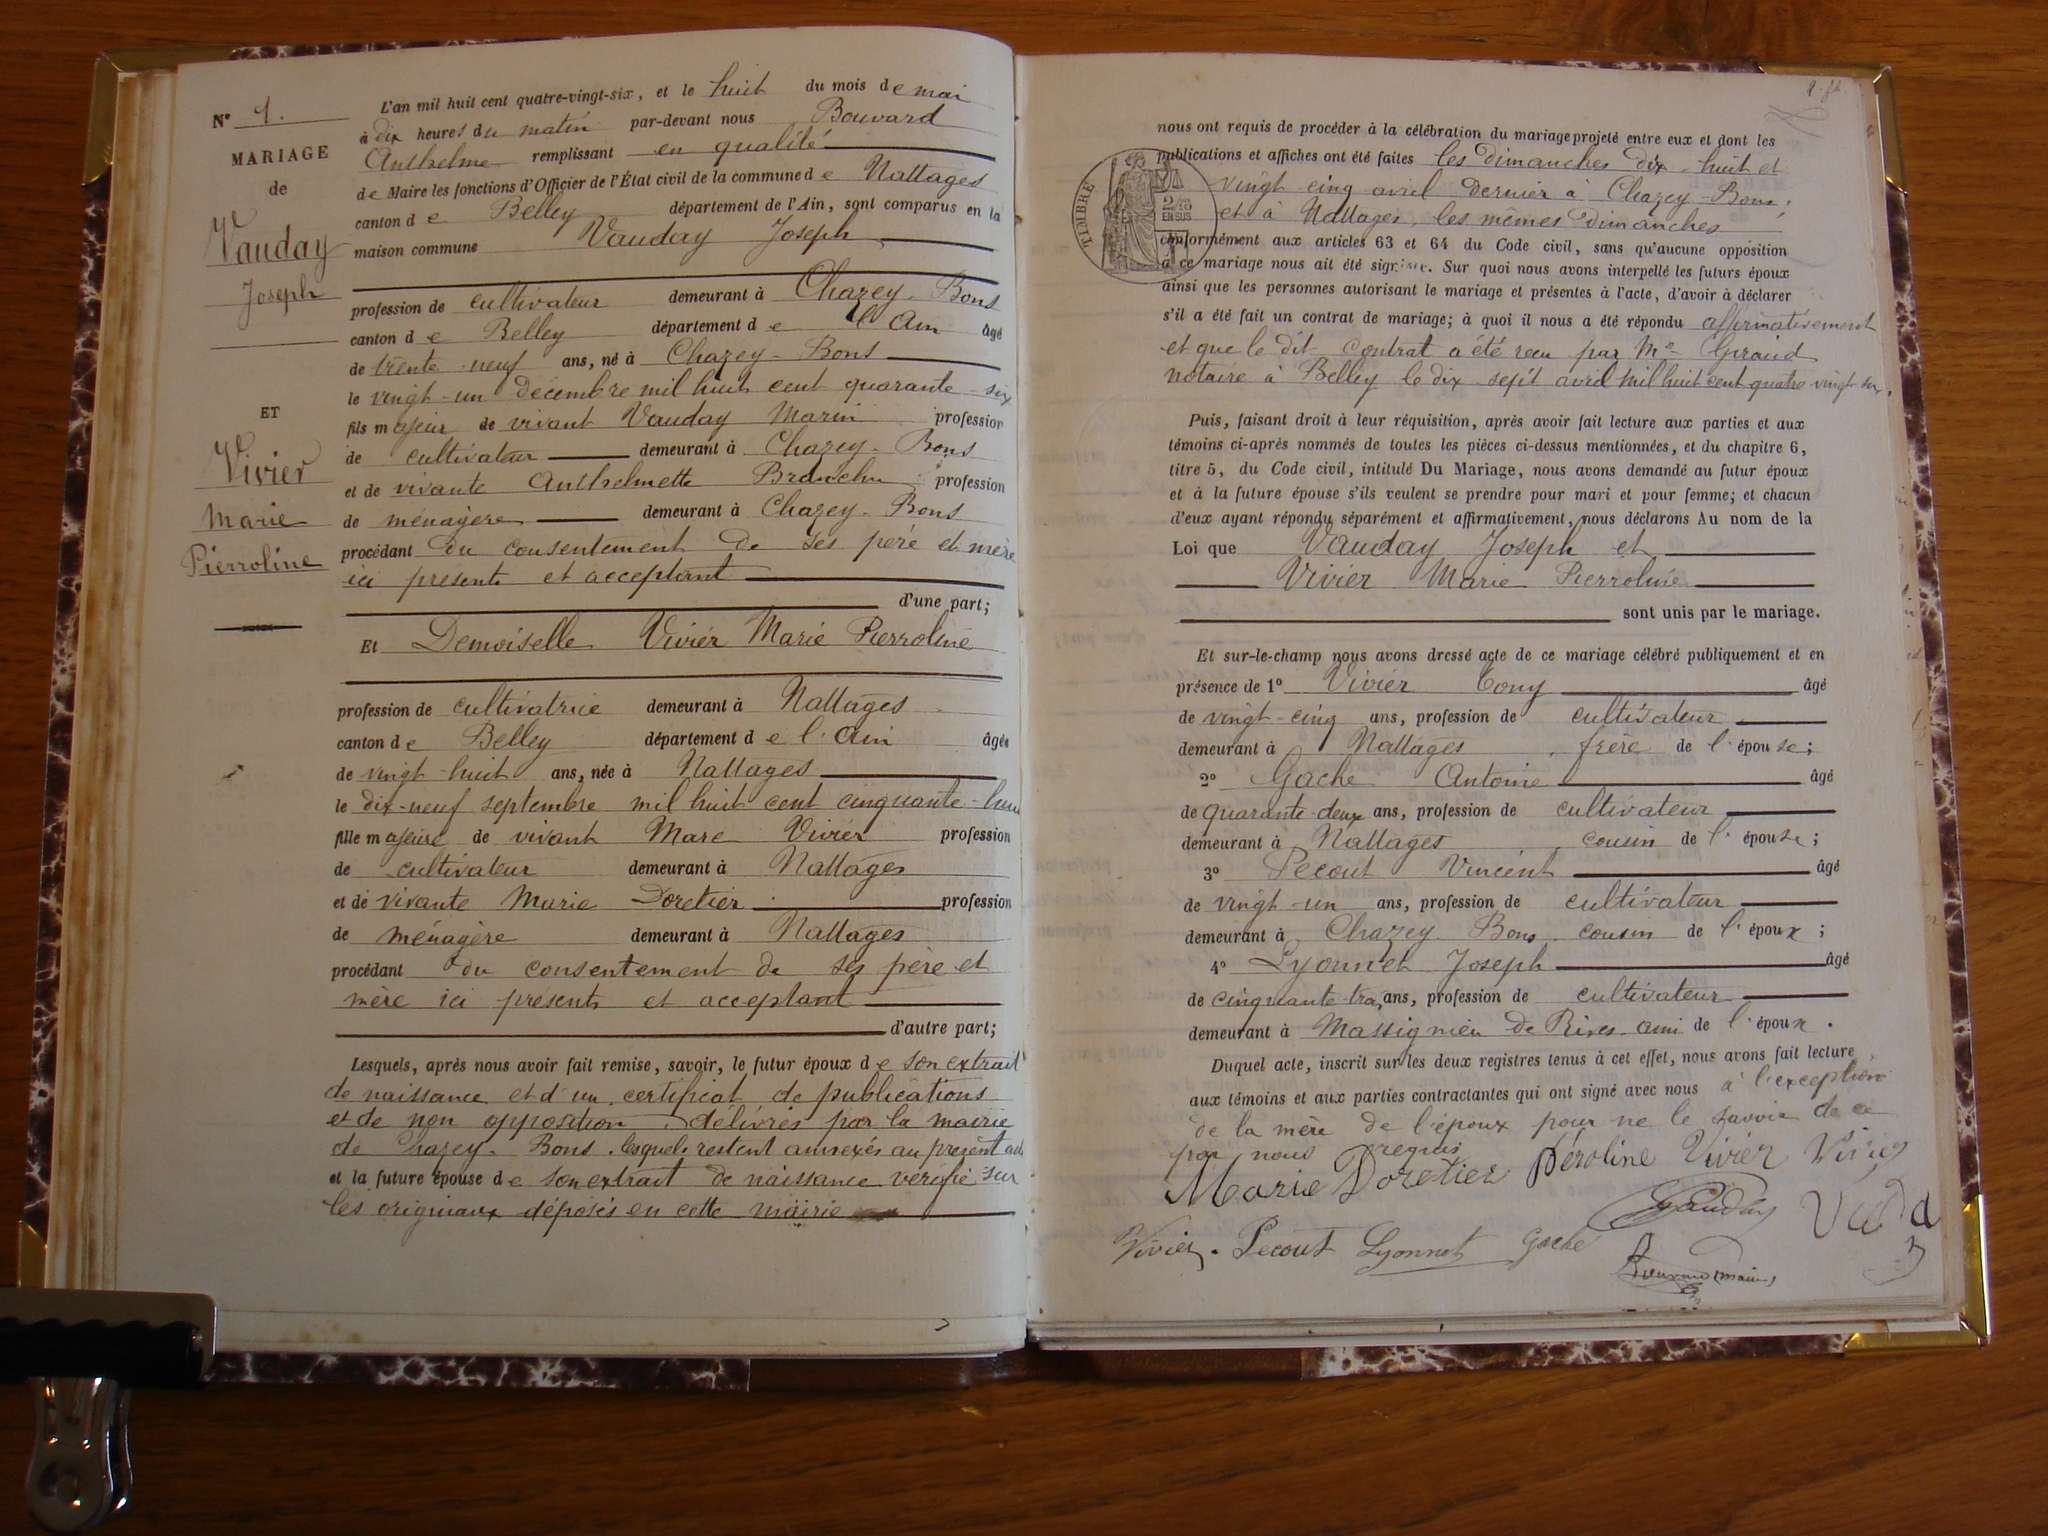 N° 1.
MARIAGE
de
Vauday
Joseph
ET
Vivier
Marie
Pierroline
L'an mil huit cent quatre-vingt-six, et le huit du mois de mai
à dix heures du matin par-devant nous Bouvard
Anthelme remplissant en qualité
de Maire les fonctions d'Officier de l'État civil de la commune de Nattages
canton de Belley département de l'Ain, sont comparus en la
maison commune Vauday Joseph
profession de cultivateur demeurant à Chazey-Bons
canton de Belley département de l'Ain âgé
de trente-neuf ans, né à Chazey-Bons
le vingt-un décembre mil huit cent quarante-six
fils majeur de vivant Vauday Marin profession
de cultivateur demeurant à Chazey-Bons
et de vivante Anthelmette Branchu profession
de ménagère demeurant à Chazey-Bons
procédant du consentement de ses père et mère
ici présents et acceptant
d'une part;
Et Demoiselle Vivier Marie Pierroline
profession de cultivatrice demeurant à Nattages
canton de Belley département de l'Ain âgée
de vingt-huit ans, née à Nattages
le dix-neuf septembre mil huit cent cinquante-
fille majeure de vivant Marc Vivier profession
de cultivateur demeurant à Nattages
et de vivante Marie Doretier profession
de ménagère demeurant à Nattages
procédant du consentement de ses père et
mère ici présents et acceptant
d'autre part;
Lesquels, après nous avoir fait remise, savoir, le futur époux de son extrait
de naissance et d'un certificat de publications
et de non opposition, délivrés par la mairie
de Chazey-Bons, lesquels restent annexés au présent
et la future épouse de son extrait de naissance vérifié sur
les originaux déposés en cette mairie
nous ont requis de procéder à la célébration du mariage projeté entre eux et dont les
publications et affiches ont été faites les dimanches dix-huit et
vingt cinq avril dernier à Chazey-Bons,
et à Nattages, les mêmes dimanches
TIMBRE
EN SUS
conformément aux articles 63 et 64 du Code civil, sans qu'aucune opposition
à ce mariage nous ait été signifiée. Sur quoi nous avons interpellé les futurs époux
ainsi que les personnes autorisant le mariage et présentes à l'acte, d'avoir à déclarer
s'il a été fait un contrat de mariage; à quoi il nous a été répondu affirmativement
et que le dit contrat a été reçu par Me Giraud
notaire à Belley le dix-sept avril mil huit cent quatre-vingt-six.
Puis, faisant droit à leur réquisition, après avoir fait lecture aux parties et aux
témoins ci-après nommés de toutes les pièces ci-dessus mentionnées, et du chapitre 6,
titre 5, du Code civil, intitulé Du Mariage, nous avons demandé au futur époux
et à la future épouse s'ils veulent se prendre pour mari et pour femme; et chacun
d'eux ayant répondu séparément et affirmativement, nous déclarons Au nom de la
Loi que Vauday Joseph et
Vivier Marie Pierroline
sont unis par le mariage.
Et sur-le-champ nous avons dressé acte de ce mariage célébré publiquement et en
présence de 1° Vivier Tony âgé
de vingt-cinq ans, profession de cultivateur
demeurant à Nattages, frère de l'épouse;
2° Gache Antoine âgé
de quarante-deux ans, profession de cultivateur
demeurant à Nattages cousin de l'épouse;
3° Pecout Vincent âgé
de vingt-un ans, profession de cultivateur
demeurant à Chazey-Bons cousin de l'époux;
4° Lyonnet Joseph âgé
de cinquante-trois ans, profession de cultivateur
demeurant à Massignieu de Rives ami de l'époux.
Duquel acte, inscrit sur les deux registres tenus à cet effet, nous avons fait lecture
aux témoins et aux parties contractantes qui ont signé avec nous à l'exception
de la mère de l'époux pour ne le savoir de ce
par nous requis
Marie Doretier Péroline Vivier Vivier
Vauday
Vivier. Pecout Lyonnet Gache
Bouvard maire